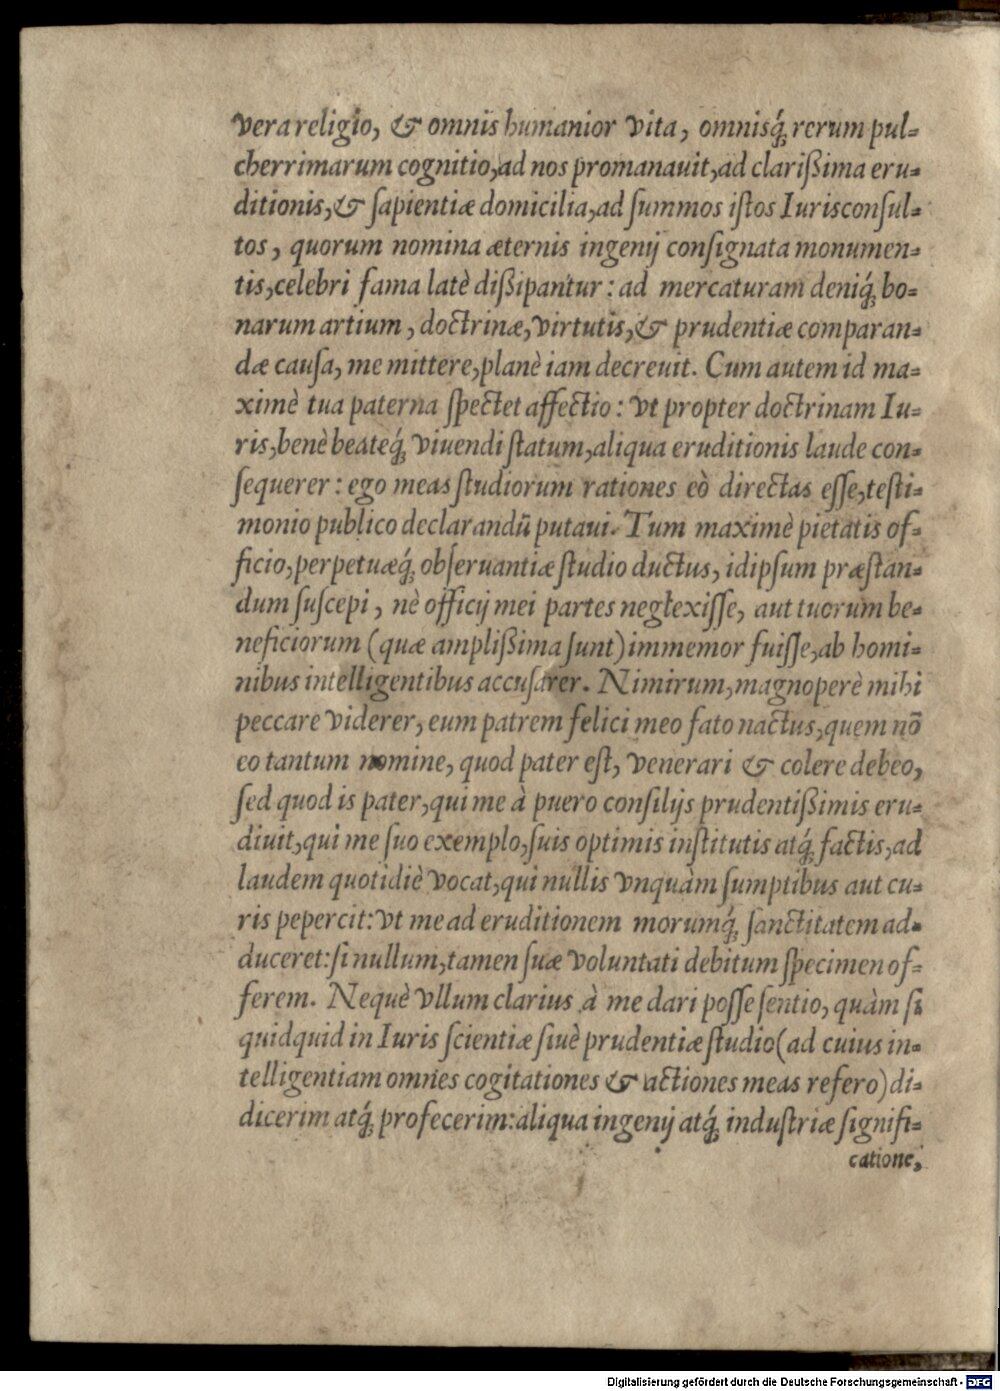 vera religio, & omnis humanior vita, omnisq́; rerum pul=
cherrimarum cognitio, ad nos promanauit, ad clarißima eru=
ditionis, & ſapientiæ domicilia, ad ſummos iſtos Iurisconſul=
tos, quorum nomina æternis ingenij conſignata monumen=
tis, celebri fama latè dißipantur: ad mercaturam deniq́; bo=
narum artium, doctrinæ, virtutis, & prudentiæ comparan=
dæ cauſa, me mittere, planè iam decreuit. Cum autem id ma=
ximè tua paterna ſpectet affectio: vt propter doctrinam Iu=
ris, benè beateq́; viuendi ſtatum, aliqua eruditionis laude con=
ſequerer: ego meas ſtudiorum rationes eò directas eſſe, teſti=
monio publico declarandū putaui. Tum maximè pietatis of=
ficio, perpetuæq́; obſeruantiæ ſtudio ductus, id ipſum præſtan=
dum ſuſcepi, nè officij mei partes neglexiſſe, aut tuorum be=
neficiorum (quæ amplißima ſunt) immemor fuiſſe, ab homi=
nibus intelligentibus accuſarer. Nimirum, magnoperè mihi
peccare viderer, eum patrem felici meo fato nactus, quem nō
eo tantum nomine, quod pater eſt, venerari & colere debeo,
ſed quod is pater, qui me à puero conſilijs prudentißimis eru=
diuit, qui me ſuo exemplo, ſuis optimis inſtitutis atq́; factis, ad
laudem quotidiè vocat, qui nullis vnquàm ſumptibus aut cu=
ris pepercit: vt me ad eruditionem morumq́; ſanctitatem ad=
duceret: ſi nullum, tamen ſuæ voluntati debitum ſpecimen of=
ferem. Nequè vllum clarius à me dari poſſe ſentio, quàm ſi
quidquid in Iuris ſcientiæ ſiuè prudentiæ ſtudio (ad cuius in=
telligentiam omnes cogitationes & actiones meas refero) di=
dicerim atq́; profecerim: aliqua ingenij atq́; induſtriæ ſignifi=
catione,
Digitalisierung gefördert durch die Deutsche Forschungsgemeinschaft - DFG